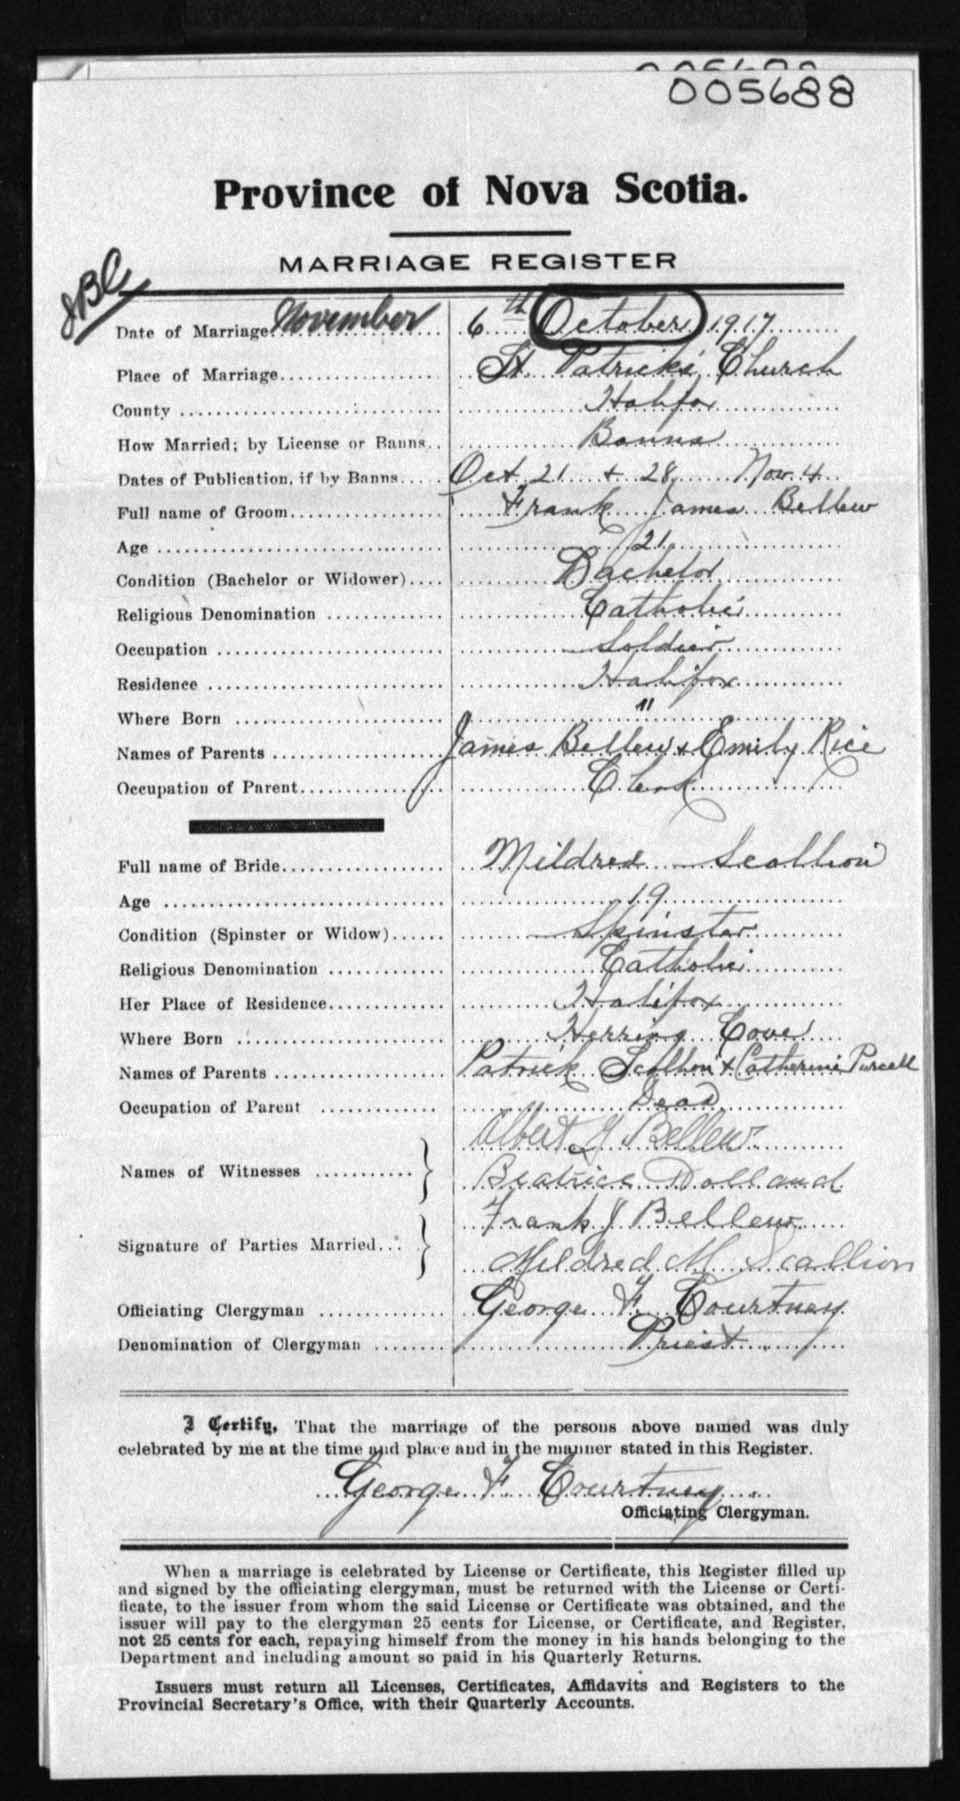 005688
005688
Province of Nova Scotia.
MARRIAGE REGISTER
JBC
Date of Marriage November 6th October 1917
Place of Marriage St. Patrick's Church
County Halifax
How Married; by License or Banns Banns
Dates of Publication, if by Banns Oct 21 + 28 Nov. 4
Full name of Groom Frank James Bellew
Age 21
Condition (Bachelor or Widower) Bachelor
Religious Denomination Catholic
Occupation Soldier
Residence Halifax
Where Born "
Names of Parents James Bellew & Emily Rice
Occupation of Parent Clerk
Full name of Bride Mildred Scallion
Age 19
Condition (Spinster or Widow) Spinster
Religious Denomination Catholic
Her Place of Residence Halifax
Where Born Herring Cove
Names of Parents Patrick Scallion & Catherine Purcell
Occupation of Parent Dead
Names of Witnesses } Albert J. Bellew
Beatrice Dolland
Signature of Parties Married } Frank J Bellew
Mildred M Scallion
Officiating Clergyman George F. Courtney
Denomination of Clergyman Priest
I Certify, That the marriage of the persons above named was duly
celebrated by me at the time and place and in the manner stated in this Register.
George F. Courtney
Officiating Clergyman.
When a marriage is celebrated by License or Certificate, this Register filled up
and signed by the officiating clergyman, must be returned with the License or Certi-
ficate, to the issuer from whom the said License or Certificate was obtained, and the
issuer will pay to the clergyman 25 cents for License, or Certificate, and Register,
not 25 cents for each, repaying himself from the money in his hands belonging to the
Department and including amount so paid in his Quarterly Returns.
Issuers must return all Licenses, Certificates, Affidavits and Registers to the
Provincial Secretary's Office, with their Quarterly Accounts.